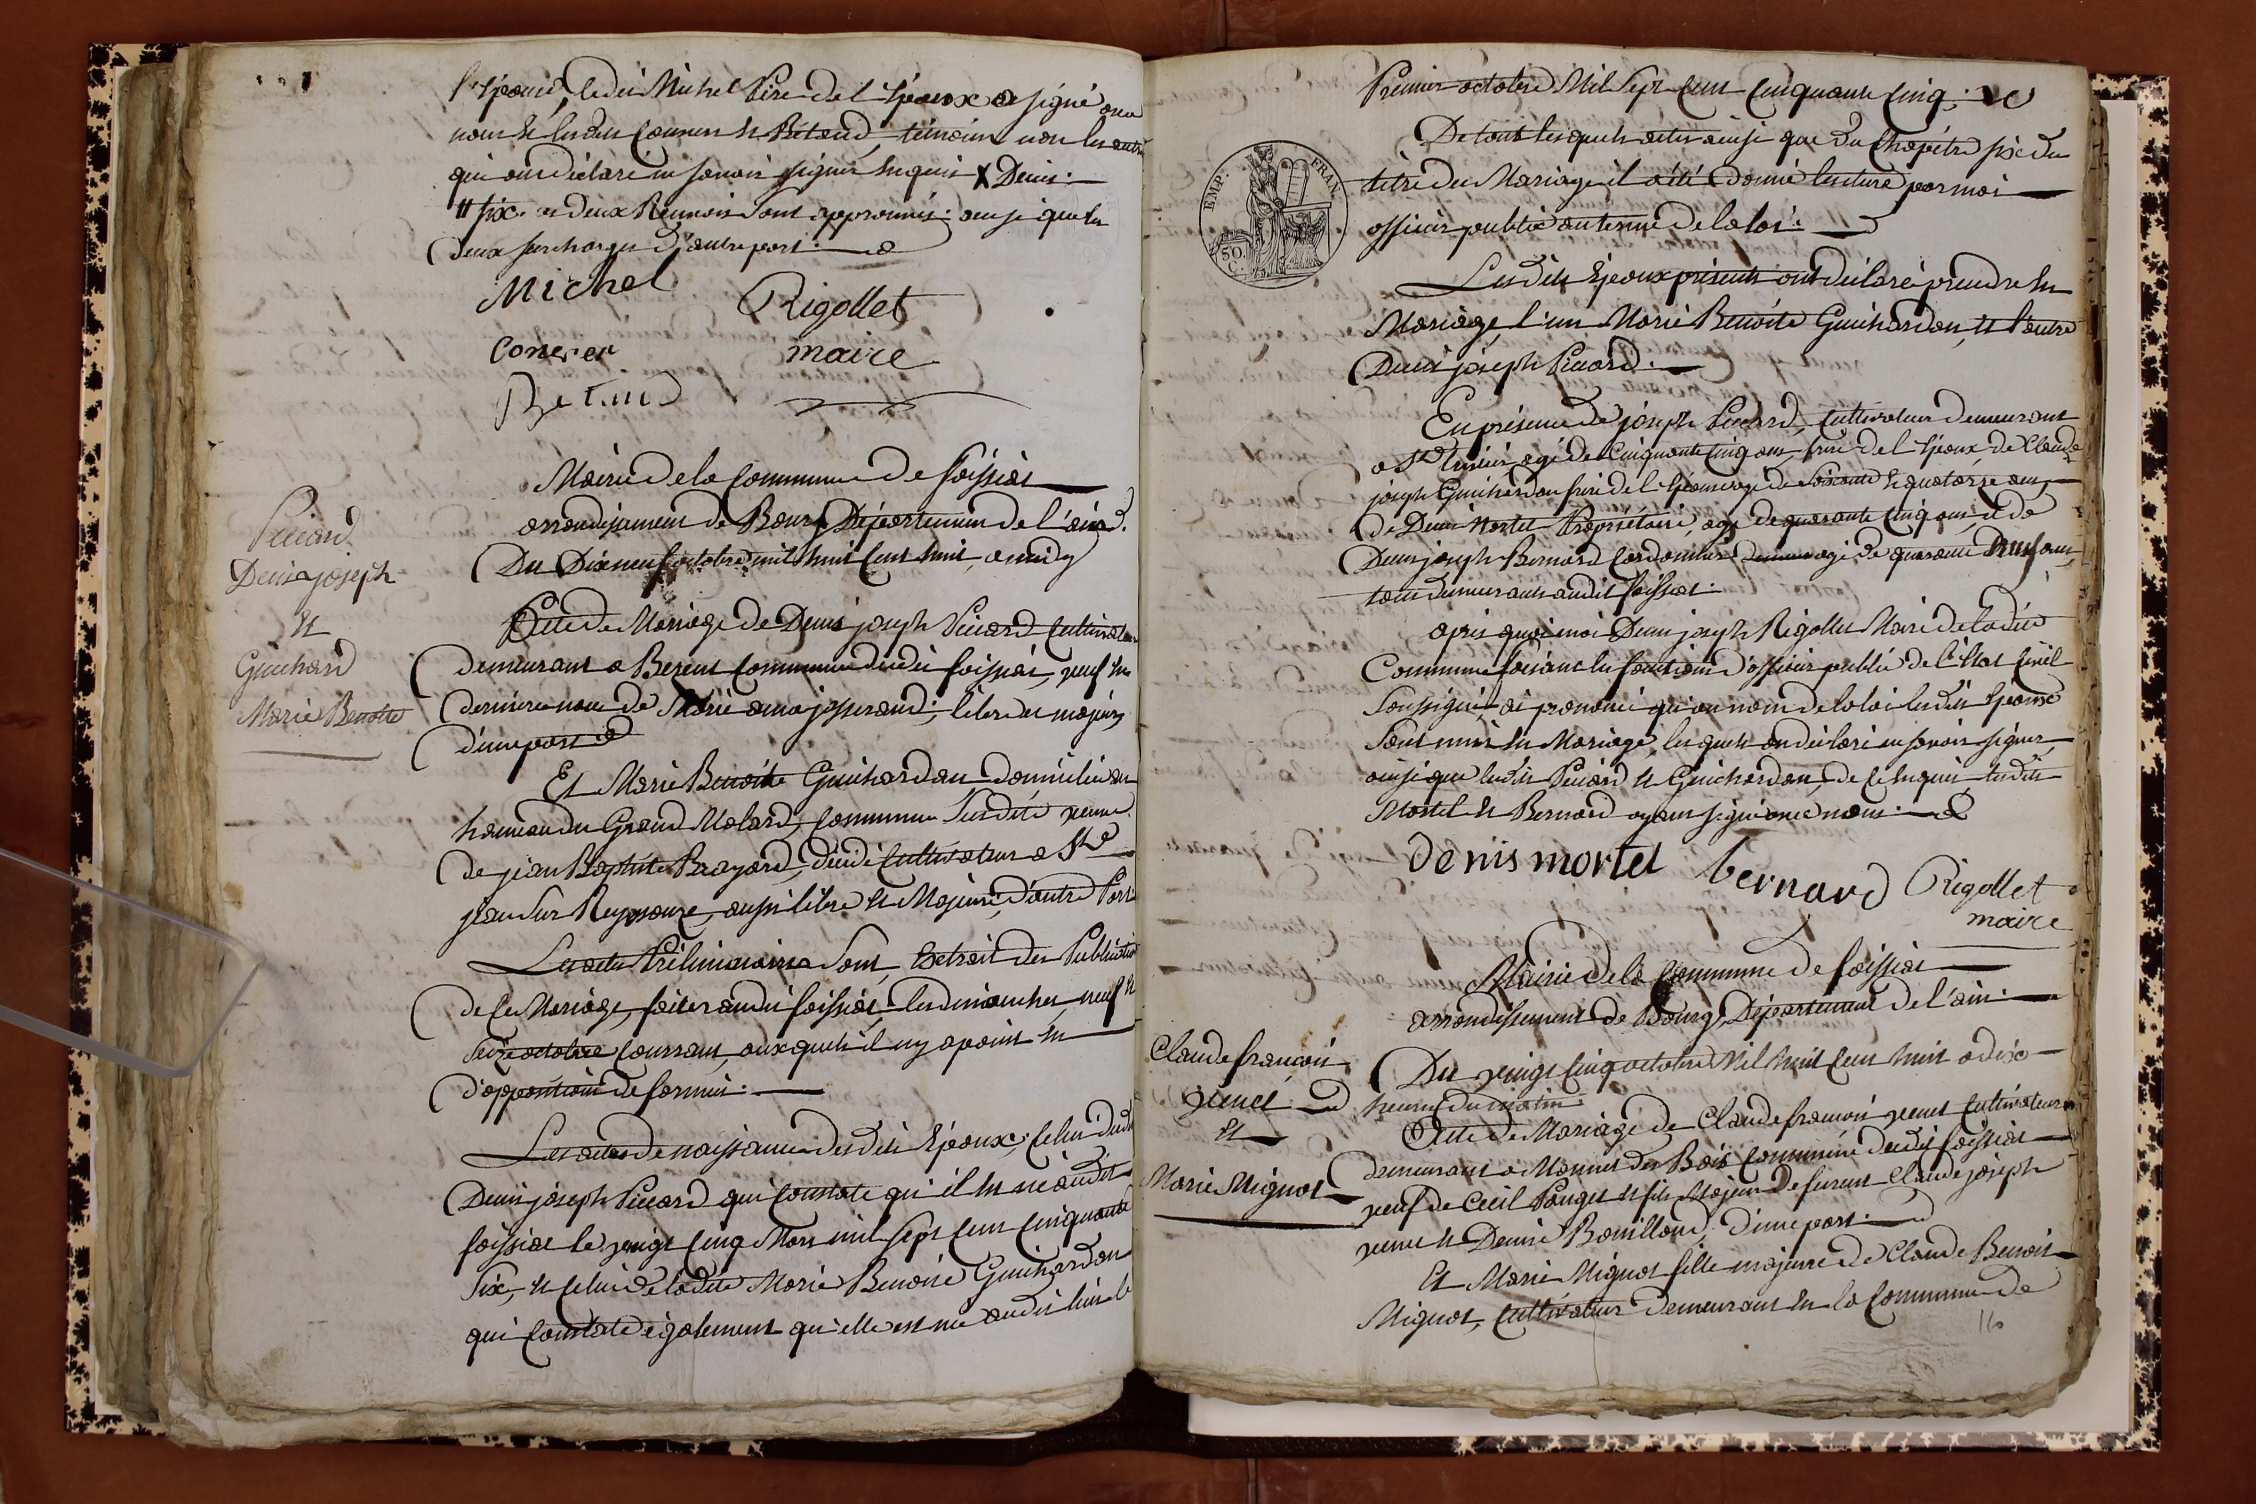 l'Epouse, ledit Michel Père de l'Epoux a signé avec
nous et lesdits Convers et Betend, témoins non les autres
qui ont déclaré ne savoir signer enquis X Denis.
# six. ces deux Renvois sont approuvés. ainsi que les
deux surcharges d'autre part.
Michel
Rigollet
maire
Picard
Denis joseph
et
Guichard
Marie Benoite
Mairie de la Commune de foissiat
arrondissement de Bourg Département de l'ain.
Du Dix neuf octobre mil huit Cent huit, a midy
Acte de Mariage de Denis joseph Picard Cultivateur
demeurant a Commune dudit foissiat, veuf en
dernière noce de Marie ana josserand, libre et majeur,
d'une part
Et Marie Benoite Guichardan domiciliée au
hameau du Grand Molard, Commune susdite veuve
de jean Baptiste décédé Cultivateur a St
jean sur Reyssouze, aussi libre et Majeure, d'autre Part
Les actes Préliminaires sont, Extrait des Publications
de Ce Mariage, faites audit foissiat, les dimanches neuf et
seize octobre Courrant, auxquels il ny a point eu
d'opposition de formée.
Les actes de naissance desdits Epoux, Celui dudit
Denis joseph Picard qui Constate qu'il est né audit
foissiat le vingt Cinq Mars mil sept Cent Cinquante
Six, et Celui de ladite Marie Benoite Guichardan
qui Constate également qu'elle est née audit lieu le
Premier octobre Mil Sept Cent Cinquante Cinq.
De tous lesquels actes ainsi que du Chapitre six du
EMP. FRAN.
50.
C.
titre du Mariage il a été donné lecture par moi
officier public au terme de la loi.
Lesdits Epoux présents ont déclaré prendre en
Mariage, l'un Marie Benoite Guichardan, et l'autre
Denis joseph Picard.
En présence de joseph Picard, Cultivateur demeurant
a agé de Cinquante Cinq ans, frère de l'Epoux de Claude
joseph Guichardan frère de l'Epouse agé de Soixante et quatorze ans,
de Denis Mortel Propriétaire, agé de quarante Cinq ans, et de
Denis joseph Bernard Cordonnier agé de quarante neuf ans,
tous demeurants audit foissiat.
après quoi moi Denis joseph Rigollet Maire de ladite
Commune faisant les fonctions d'officier public de l'Etat Civil
Soussigné, ai prononcé qu'au nom de la loi lesdits Epoux
Sont unis en Mariage, lesquels ont déclaré ne savoir signer,
ainsi que lesdits Picard et Guichardan, de Ce enquis, lesdits
Mortel et Bernard ayant signé avec nous.
denis mortel
bernard
Rigollet
maire
Mairie de la Commune de foissiat
arrondissement de Bourg, Département de l'ain.
Claude françois
et
Marie Mignot
Du vingt Cinq octobre Mil huit Cent huit a dix
heures du matin
Acte de Mariage de Claude françois Cultivateur
demeurant a des Bois Commune dudit foissiat
veuf de Cecil Pauget et fils Majeur de furent Claude joseph
et Denise Bouilloud, d'une part.
Et Marie Mignot fille majeure de Claude Benoit
Mignot, Cultivateur demeurant en la Commune de
116